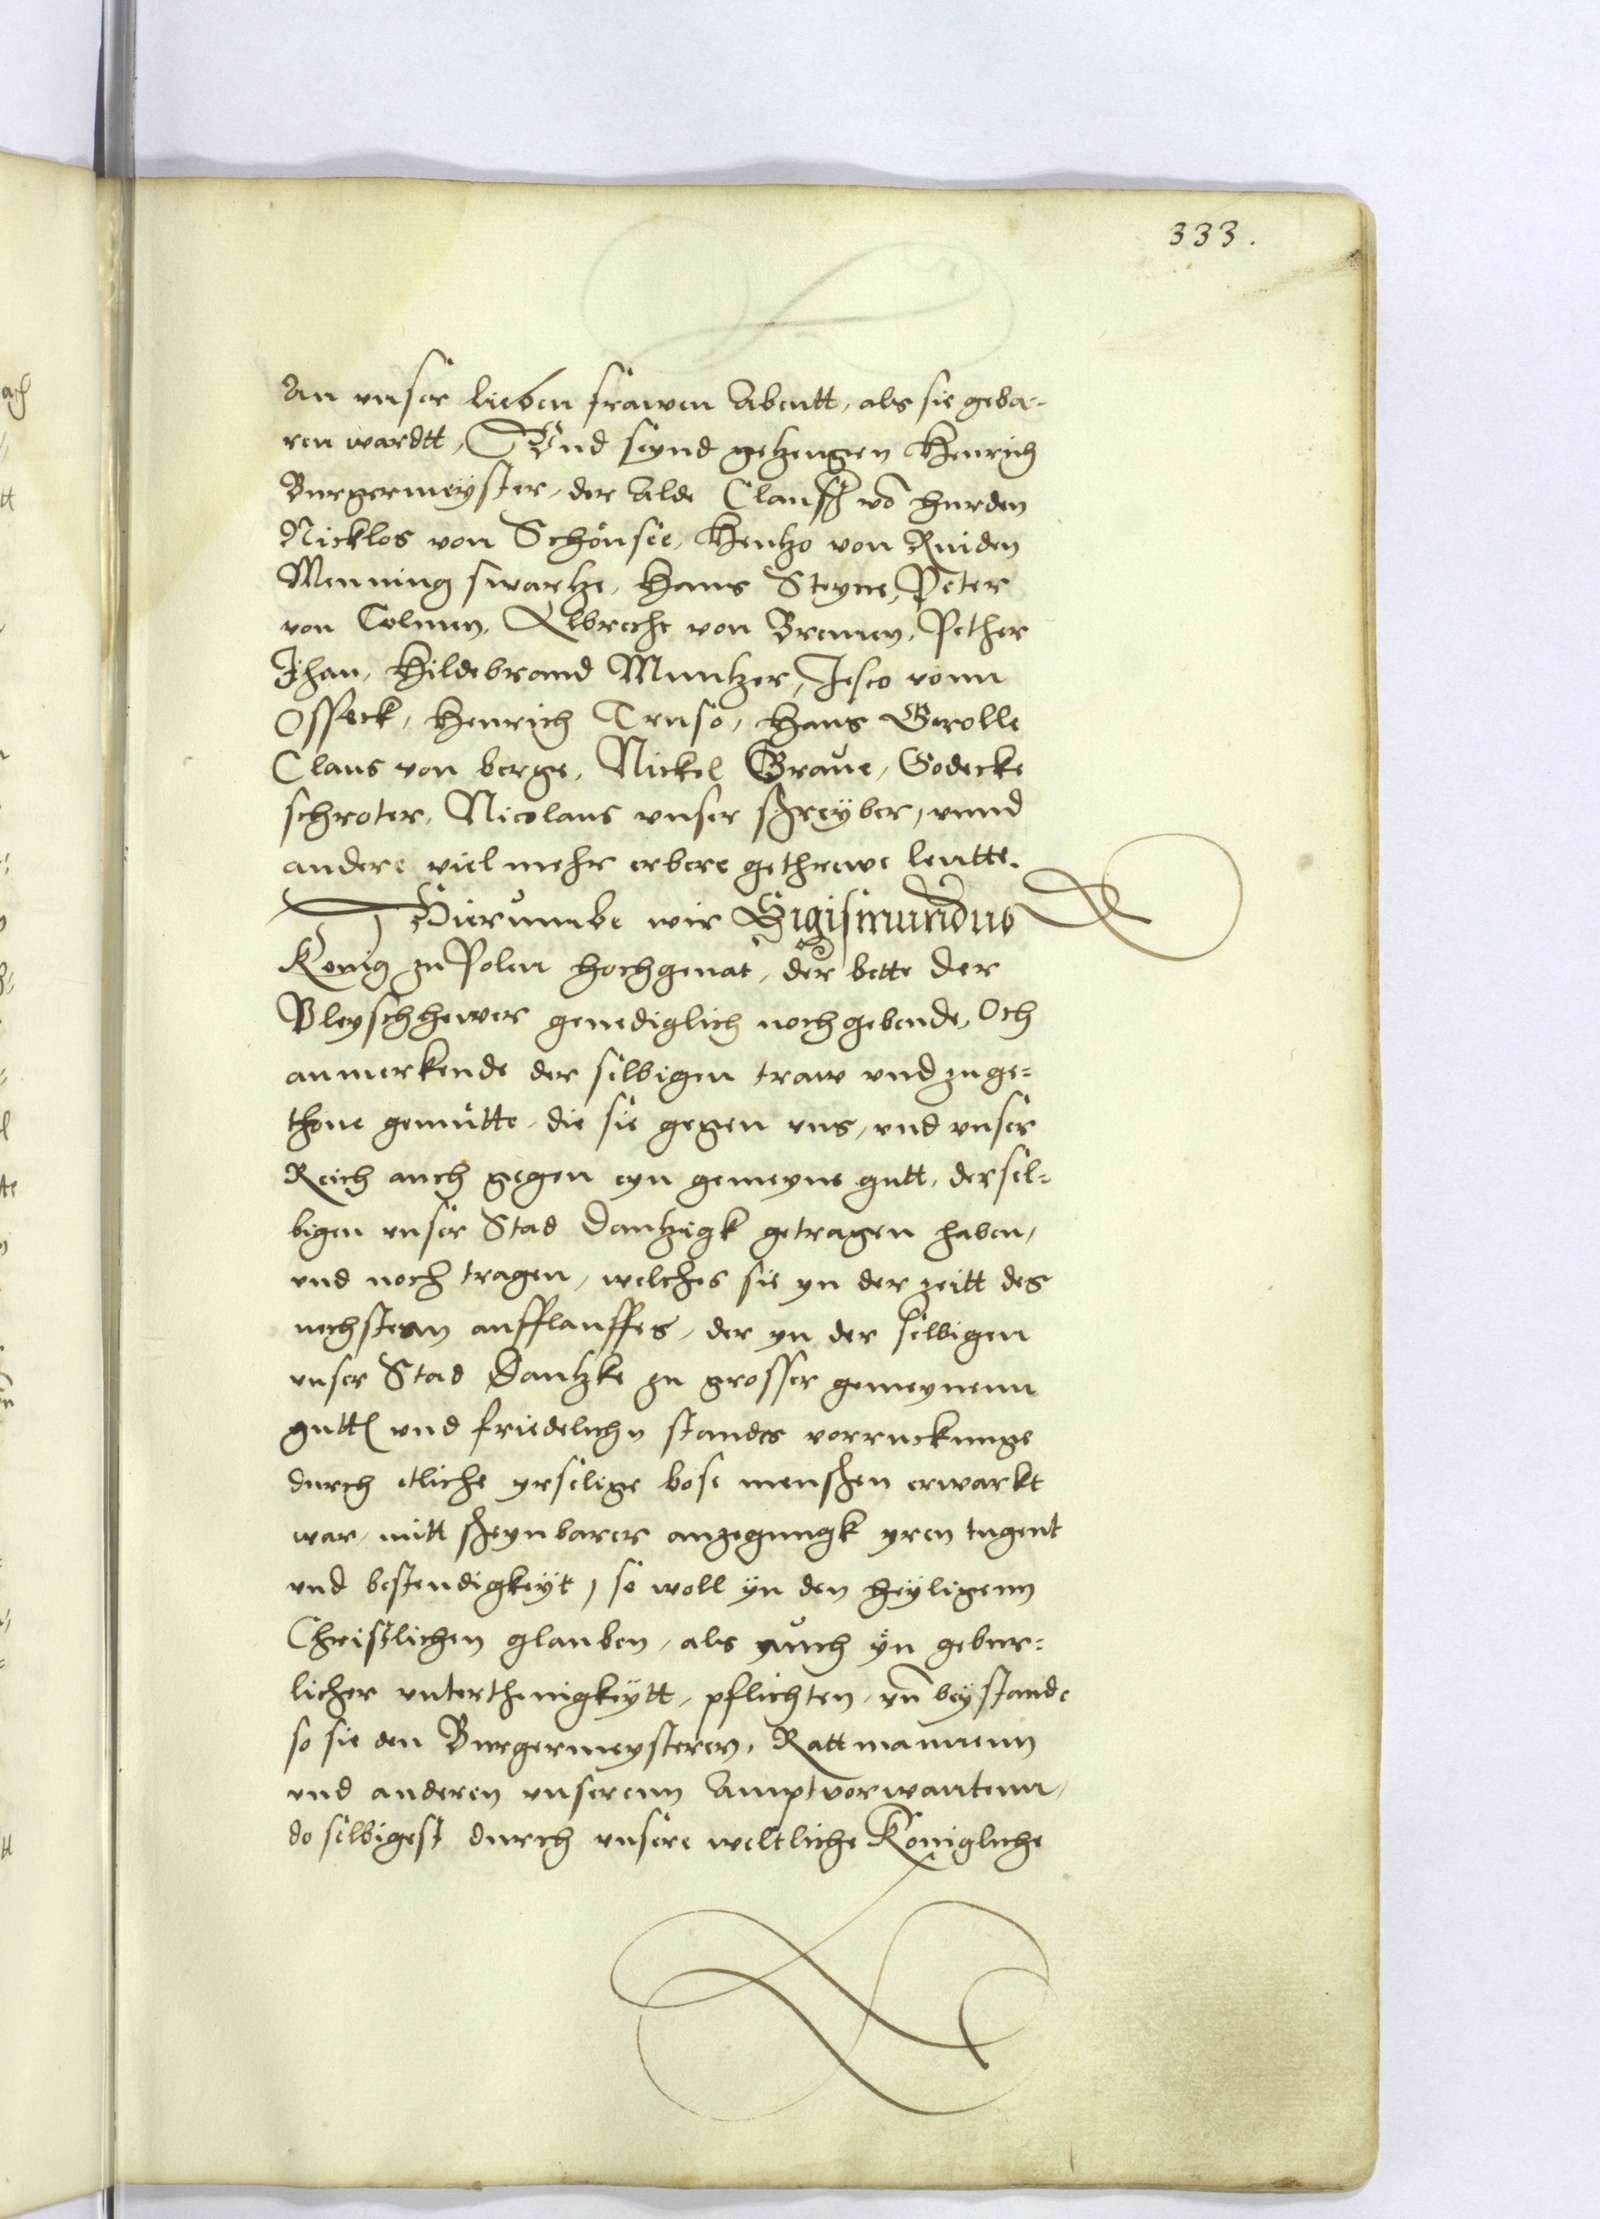 333.
An unser lieben frawen Abentt, als sie gebo-
ren wardtt, Und seynd getzeugen Henrich
Burgermeyster, der Alde Clauss võ hurden
Nicklos von Schönsee, Hentzo von Ruiden
Menning swartze, Hans Steyne, Peter
von Colmen, Albrecht von Bremen, Pether
Jhan, Hildebrand Muntzer, Jesco vonn
Osseck, Henrich Truso, Hans Grolle
Claus von berge, Nickel Grawe, Godecke
schroter, Nicolaus unser schreyber, unnd
andere viel mehr erbere gethrewe leutte.
Hierumbe wir Sigismundus
Konig zu Polen hochgenãt, der bette der
Vleyschhewer genediglich nochgebende, Och
anmerkende der selbigen traw und zuge=
thone gemutte, die sie gegen uns, und unser
Reich auch gegen eyn gemeyne gutt, dersel=
bigen unser Stad Dantzigk getragen haben,
und noch tragen, welches sie yn der zeitt des
nechstenn aufflauffes, der yn der selbigen
unser Stad Dantzke zu grosser gemeynenn
gutts und friedelichen standes vorruckunge
durch etliche yrselige bose menschen erwarkt
war, mitt scheynbarer anzegungk yren tugent
und bestendigkeyt, so woll yn den heyligenn
Christlichen glauben, als auch yn gebur=
licher unterthenigkeytt, pflichten, uñ beystande
so sie den Burgermeysteren, Rattmannenn
und anderen unserenn Amptvorwantenn,
do selbigest durch unsere weltliche Konigliche